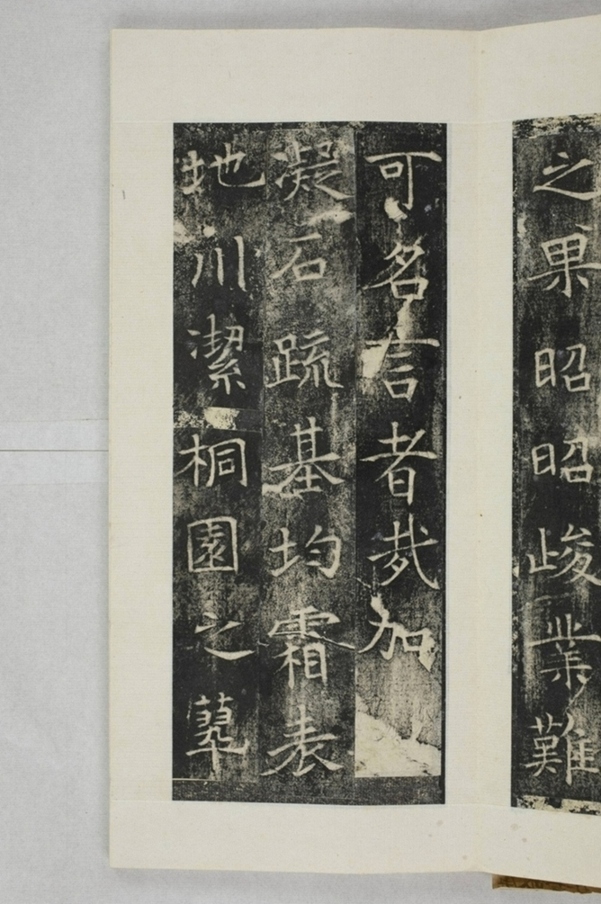 之果昭昭峻業難
可名言者哉加
凝石疏基均霜表
地川潔桐園之